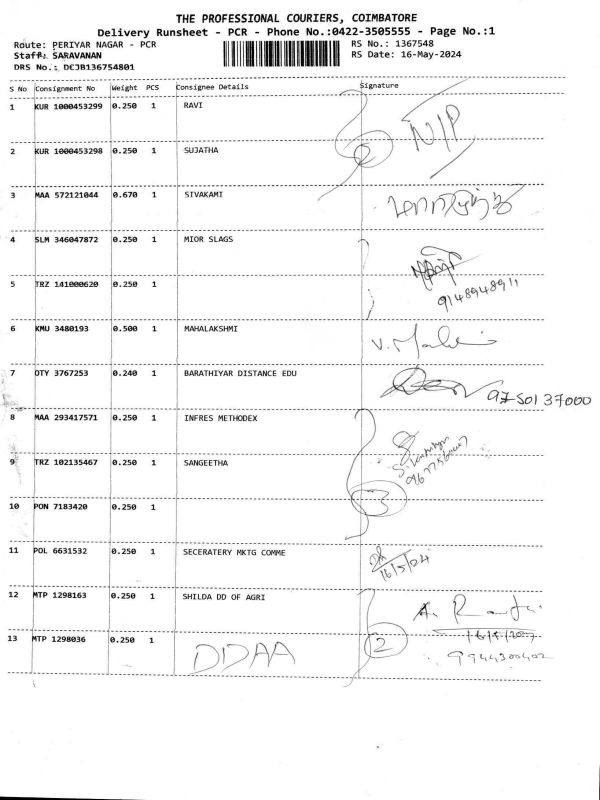 THE PROFESSIONAL COURIERS, COIMBATORE
Delivery Runsheet - PCR - Phone No.:0422-3505555 - Page No.:1
Route: PERIYAR NAGAR - PCR
RS No.: 1367548
Staff: SARAVANAN
RS Date: 16-May-2024
DRS No.: DEJB136754801
S No Consignment No Weight PCS Consignee Details Signature
1 KUR 1000453299 0.250 1 RAVI
N/P
2 KUR 1000453298 0.250 1 SUJATHA
2
3 MAA 572121044 0.670 1 SIVAKAMI
4 SLM 346047872 0.250 1 MIOR SLAGS
5 TRZ 141000620 0.250 1
9148948911
6 KMU 3480193 0.500 1 MAHALAKSHMI
7 OTY 3767253 0.240 1 BARATHIYAR DISTANCE EDU
9750137000
8 MAA 293417571 0.250 1 INFRES METHODEX
9 TRZ 102135467 0.250 1 SANGEETHA
3
10 PON 7183420 0.250 1
11 POL 6631532 0.250 1 SECERATERY MKTG COMME
16/5/24
12 MTP 1298163 0.250 1 SHILDA DD OF AGRI
13 MTP 1298036 0.250 1 DDAA
2
9944300402